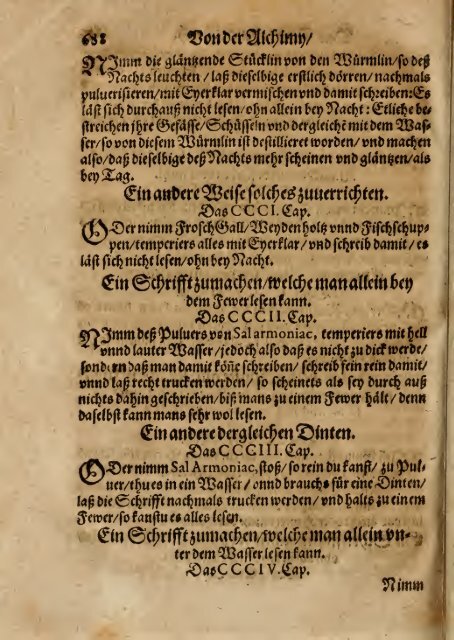 688 Von der Alchimy/
NJmm die gläntzende Stücklin von den Würmlin/ so deß
Nachts leuchten / laß dieselbige erstlich dörren/ nachmals
puluerisieren/ mit Eyerklar vermischen vnd damit schreiben: Es
läst sich durchauß nicht lesen/ ohn allein bey Nacht: Etliche be-
streichen jhre Gefässe/ Schüsseln vnd dergleichẽ mit dem Was-
ser/ so von diesem Würmlin ist destilliert worden/ vnd machen
also/ daß dieselbige deß Nachts mehr scheinen vnd gläntzen/ als
bey Tag.
Ein andere Weise solches zuuerrichten.
Das CCCI. Cap.
ODer nimm Frosch Gall/ Weyden holtz vnnd Fischschup-
pen/ temperiers alles mit Eyerklar/ vnd schreib damit/ es
läst sich nicht lesen/ ohn bey Nacht.
Ein Schrifft zumachen/ welche man allein bey
dem Fewer lesen kann.
Das CCCII. Cap.
NJmm deß Puluers von Sal armoniac, temperiers mit hell
vnnd lauter Wasser/ jedoch also daß es nicht zu dick werde/
sondern daß man damit köñe schreiben/ schreib fein rein damit/
vnnd laß recht trucken werden/ so scheinets als sey durch auß
nichts dahin geschrieben/ biß mans zu einem Fewer hält/ denn
daselbst kann mans sehr wol lesen.
Ein andere dergleichen Dinten.
Das CCCIII. Cap.
ODer nimm Sal Armoniac, stoß/ so rein du kanst/ zu Pul-
uer/ thues in ein Wasser / vnnd brauchs für eine Dinten/
laß die Schrifft nachmals trucken werden/ vnd halts zu einem
Fewer/ so kanstu es alles lesen.
Ein Schrifft zumachen/ welche man allein vn-
ter dem Wasser lesen kann.
Das CCCIV. Cap.
Nimm